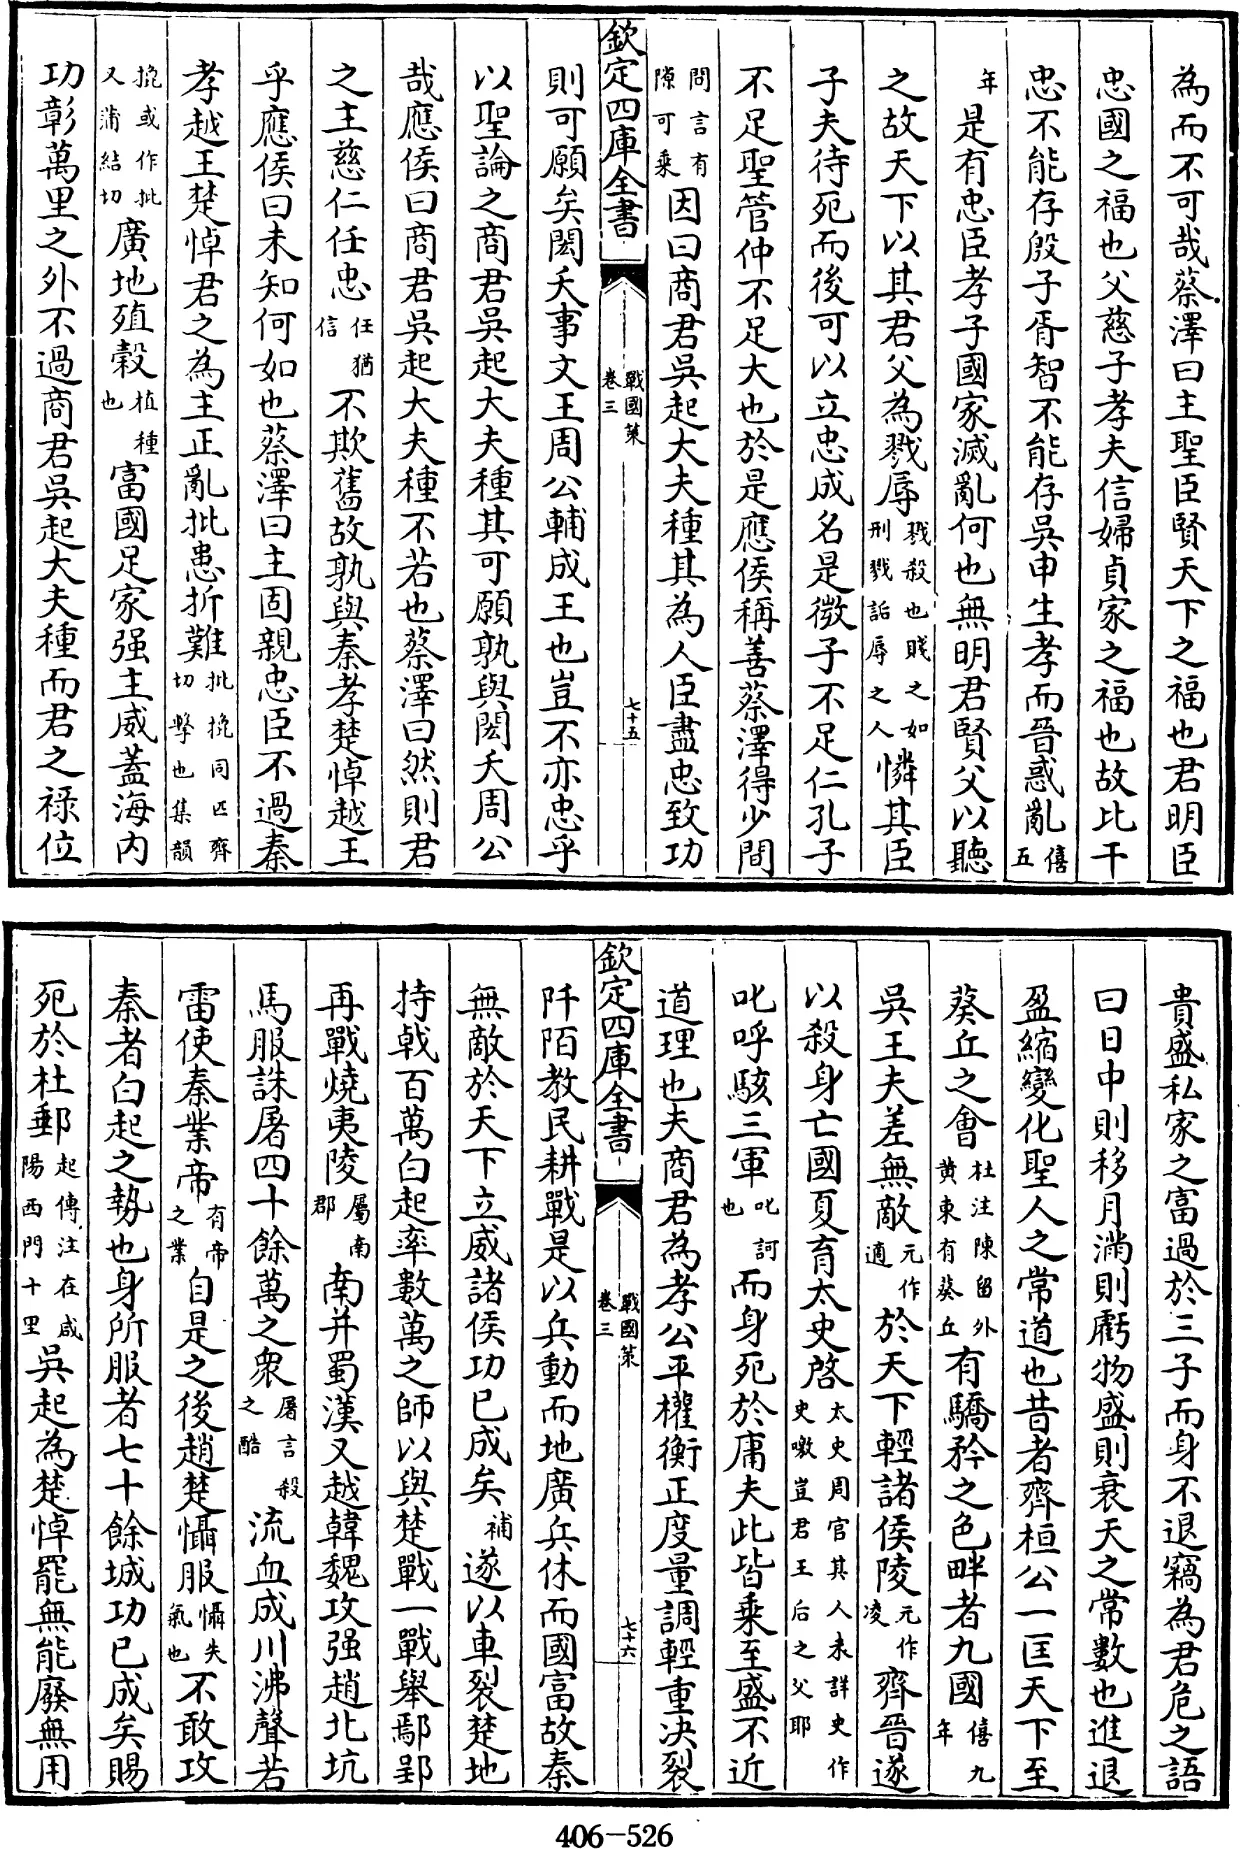 為而不可哉蔡澤曰主聖臣賢天下之福也君明臣
忠國之福也父慈子孝夫信婦貞家之福也故比干
忠不能存殷子胥智不能存吳申生孝而晉惑亂僖五
年是有忠臣孝子國家滅亂何也無明君賢父以聽
之故天下以其君父為戮辱戮殺也賤之如刑戮詬辱之人憐其臣
子夫待死而後可以立忠成名是微子不足仁孔子
不足聖管仲不足大也於是應侯稱善蔡澤得少間
間言有隙可乗因曰商君吳起大夫種其為人臣盡忠致功
欽定四庫全書
戰國策
卷三
七十五
則可願矣閎夭事文王周公輔成王也豈不亦忠乎
以聖論之商君吳起大夫種其可願孰與閎夭周公
哉應侯曰商君吳起大夫種不若也蔡澤曰然則君
之主慈仁任忠任猶信不欺舊故孰與秦孝楚悼越王
乎應侯曰未知何如也蔡澤曰主固親忠臣不過秦
孝越王楚悼君之為主正亂批患折難批㧢同匹齊切擊也集韻
㧢或作批又蒲結切廣地殖榖植種也富國足家强主威蓋海内
功彰萬里之外不過商君吳起大夫種而君之祿位
貴盛私家之富過於三子而身不退竊為君危之語
曰日中則移月滿則虧物盛則衰天之常數也進退
盈縮變化聖人之常道也昔者齊桓公一匡天下至
葵丘之會杜注陳留外黄東有葵丘有驕矜之色畔者九國僖九年
吳王夫差無敵元作適於天下輕諸侯陵元作凌齊晉遂
以殺身亡國夏育太史啓太史周官其人未詳史作史噭豈君王后之父耶
叱呼駭三軍叱訶也而身死於庸夫此皆乗至盛不近
道理也夫商君為孝公平權衡正度量調輕重決裂
欽定四庫全書
戰國策
卷三
七十六
阡陌教民耕戰是以兵動而地廣兵休而國富故秦
無敵於天下立威諸侯功已成矣補遂以車裂楚地
持戟百萬白起率數萬之師以與楚戰一戰舉鄢郢
再戰燒夷陵屬南郡南并蜀漢又越韓魏攻强趙北坑
馬服誅屠四十餘萬之衆屠言殺之酷流血成川沸聲若
雷使秦業帝有帝之業自是之後趙楚懾服懾失氣也不敢攻
秦者白起之勢也身所服者七十餘城功已成矣賜
死於杜郵起傳注在咸陽西門十里吳起為楚悼罷無能廢無用
406-526